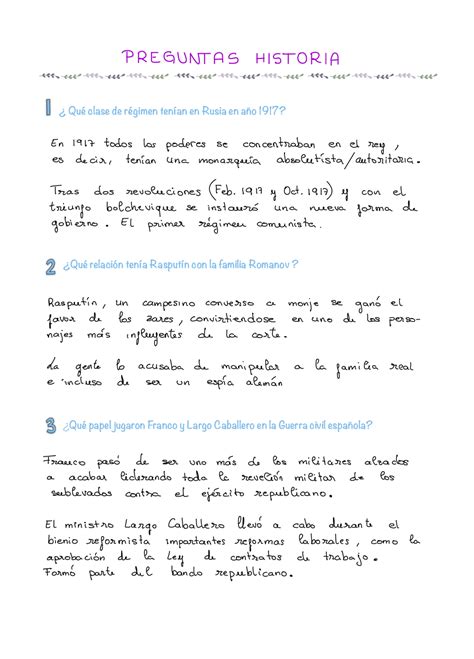 PREGUNTAS HISTORIA
1 ¿ Qué clase de régimen tenían en Rusia en año 1917?
En 1917 todos los poderes se concentraban en el rey ,
es decir, tenían una monarquía absolutista/autoritaria.
Tras dos revoluciones (Feb. 1917 y Oct. 1917) y con el
triunfo bolchevique se instauró una nueva forma de
gobierno . El primer régimen comunista.
2 ¿Qué relación tenía Rasputín con la familia Romanov ?
Rasputín , un campesino converso a monje se ganó el
favor de los zares , convirtiendose en uno de los perso-
najes más influyentes de la corte.
La gente lo acusaba de manipular a la familia real
e incluso de ser un espía alemán
3 ¿Qué papel jugaron Franco y Largo Caballero en la Guerra civil española?
Franco pasó de ser uno más de los militares alzados
a acabar liderando toda la revelión militar de los
sublevados contra el ejército republicano.
El ministro Largo Caballero llevó a cabo durante el
bienio reformista importantes reformas laborales , como la
aprobación de la Ley de contratos de trabajo .
Formó parte del bando republicano.